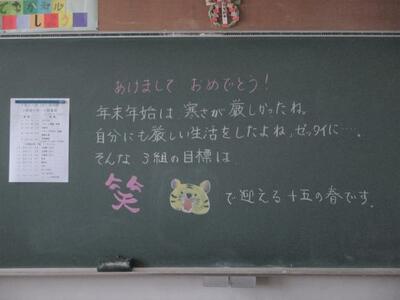 あけまして おめでとう!
年末年始は、寒さが厳しかったね。
自分にも厳しい生活をしたよね、ゼッタイに…。
そんな 3組の目標は
笑 で迎える 十五の春です。